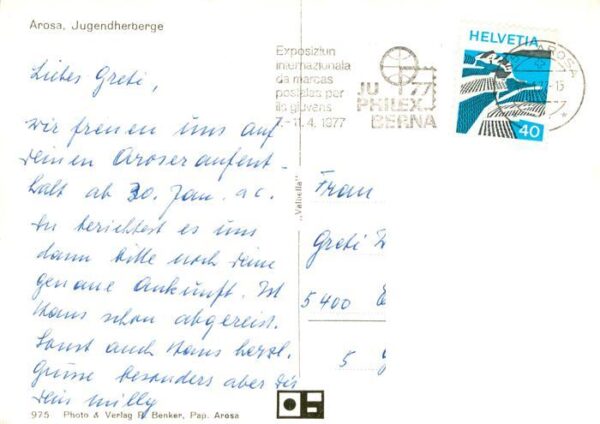 Arosa, Jugendherberge
Exposiziun
internaziunala
da marcas
postalas per
ils giuvens
7.-11.4.1977
JU 77
PHILEX
BERNA
HELVETIA
40
AROSA
Liebes Greti,
wir freuen uns auf
deinen Aroseraufent-
halt ab 30. Jan. a.c.
Du berichtest es uns
dann bitte noch deine
genaue Ankunft. Ist
Hans schon abgereist.
Sonst auch Hans herzl.
Grüsse besonders aber Dir
dein Milly
Frau
Greti
5400
5
„Valuella"
975 Photo & Verlag R. Benker, Pap. Arosa